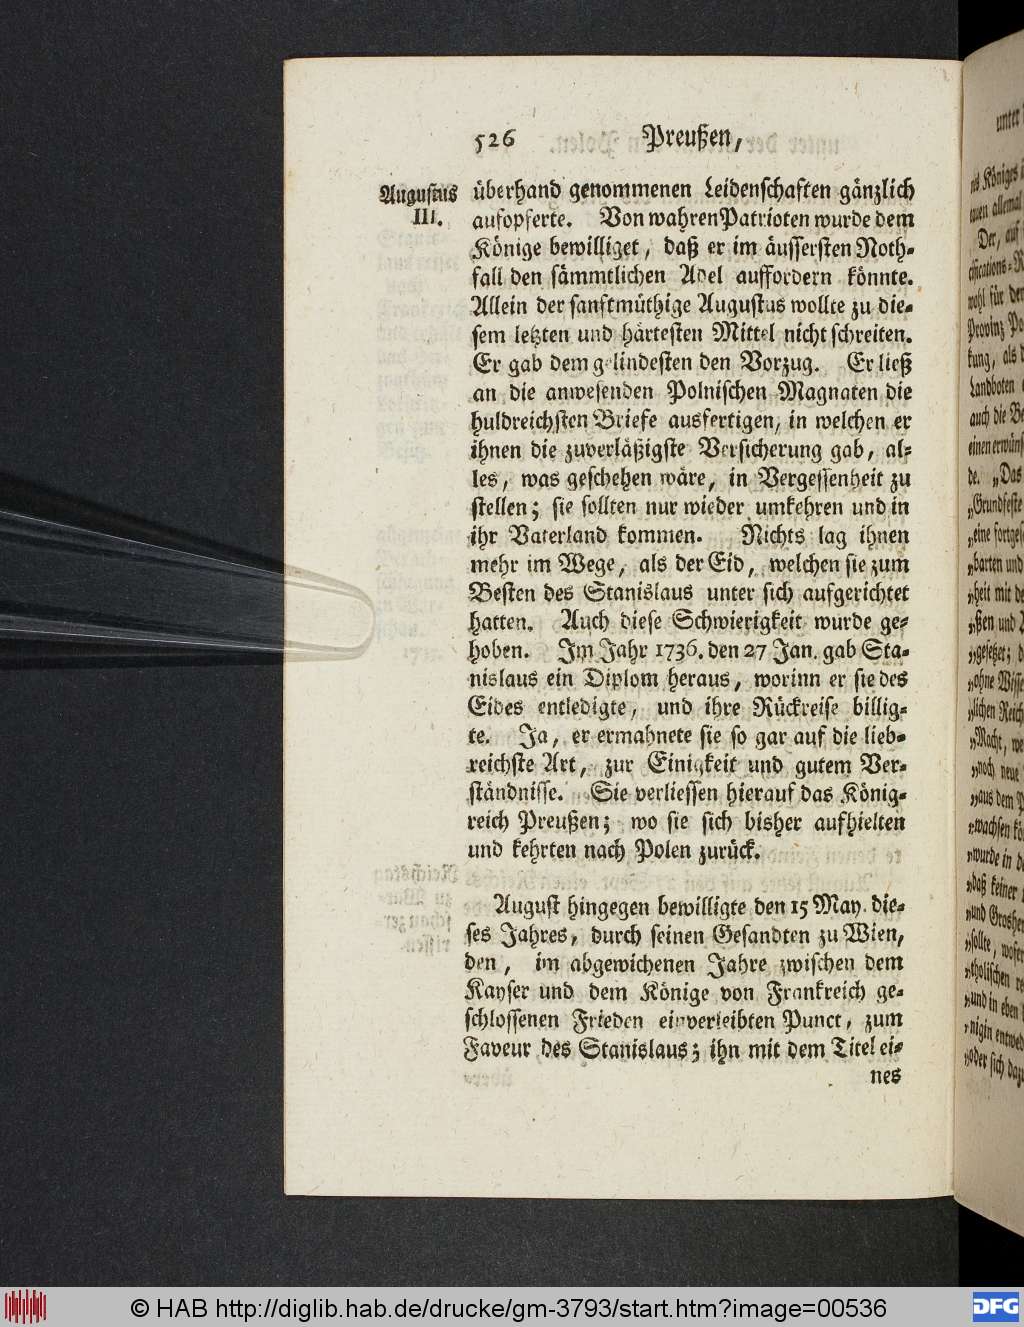 526 Preußen,
Augustus
III.
überhand genommenen Leidenschaften gänzlich
aufopferte. Von wahren Patrioten wurde dem
Könige bewilliget, daß er im äussersten Noth-
fall den sämmtlichen Adel auffordern könnte.
Allein der sanftmüthige Augustus wollte zu die-
sem letzten und härtesten Mittel nicht schreiten.
Er gab dem gelindesten den Vorzug. Er ließ
an die anwesenden Polnischen Magnaten die
huldreichsten Briefe ausfertigen, in welchen er
ihnen die zuverläßigste Versicherung gab, al-
les, was geschehen wäre, in Vergessenheit zu
stellen; sie sollten nur wieder umkehren und in
ihr Vaterland kommen. Nichts lag ihnen
mehr im Wege, als der Eid, welchen sie zum
Besten des Stanislaus unter sich aufgerichtet
hatten. Auch diese Schwierigkeit wurde ge-
hoben. Im Jahr 1736. den 27 Jan. gab Sta-
nislaus ein Diplom heraus, worinn er sie des
Eides entledigte, und ihre Rückreise billig-
te. Ja, er ermahnete sie so gar auf die lieb-
reichste Art, zur Einigkeit und gutem Ver-
ständnisse. Sie verliessen hierauf das König-
reich Preußen; wo sie sich bisher aufhielten
und kehrten nach Polen zurück.
August hingegen bewilligte den 15 May. die-
ses Jahres, durch seinen Gesandten zu Wien,
den, im abgewichenen Jahre zwischen dem
Kayser und dem Könige von Frankreich ge-
schlossenen Frieden einverleibten Punct, zum
Faveur des Stanislaus; ihn mit dem Titel ei-
nes
unter
Königes
allemal
Der, auf
wahl für den
Provinz
kung, als
Landboten
auch die
einen
de. „Das
„Grundfeste
„eine
„barten und
„heit mit
„ßen und
„gesetzet;
„ohne
„lichen
„Macht,
„noch neue
„aus dem
„wachsen
„wurde in
„daß keiner
„und
„sollte,
„tholischen
„und in eben
„nigin
„oder sich
© HAB http://diglib.hab.de/drucke/gm-3793/start.htm?image=00536
DFG